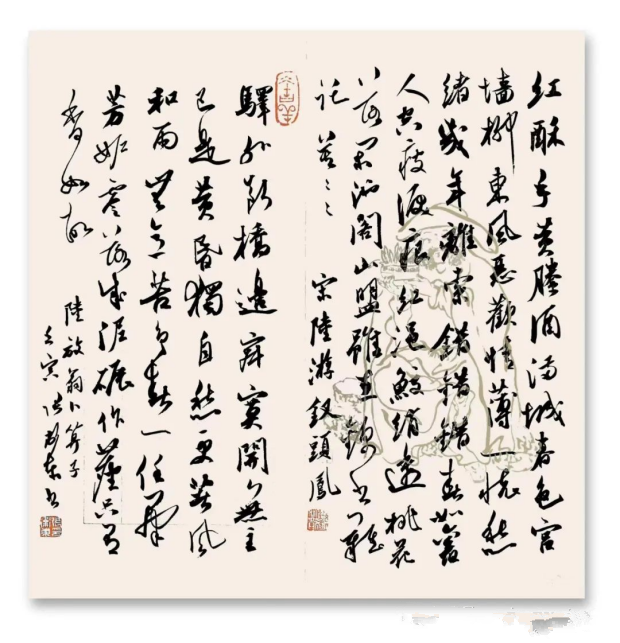 红酥手黄縢酒满城春色宫
墙柳東風惡歡情薄一懷愁
绪歲年離索錯錯錯春如舊
人空瘦淚痕紅浥鮫綃透桃花
落閑池閣山盟雖在錦書難
託莫〻〻
宋陸游釵頭鳳
驛外斷橋邊寂寞開無主
已是黄昏獨自愁更著風
和雨無意苦争春一任群
芳妒零落成泥碾作塵只有
香如故
陸放翁卜算子
壬寅